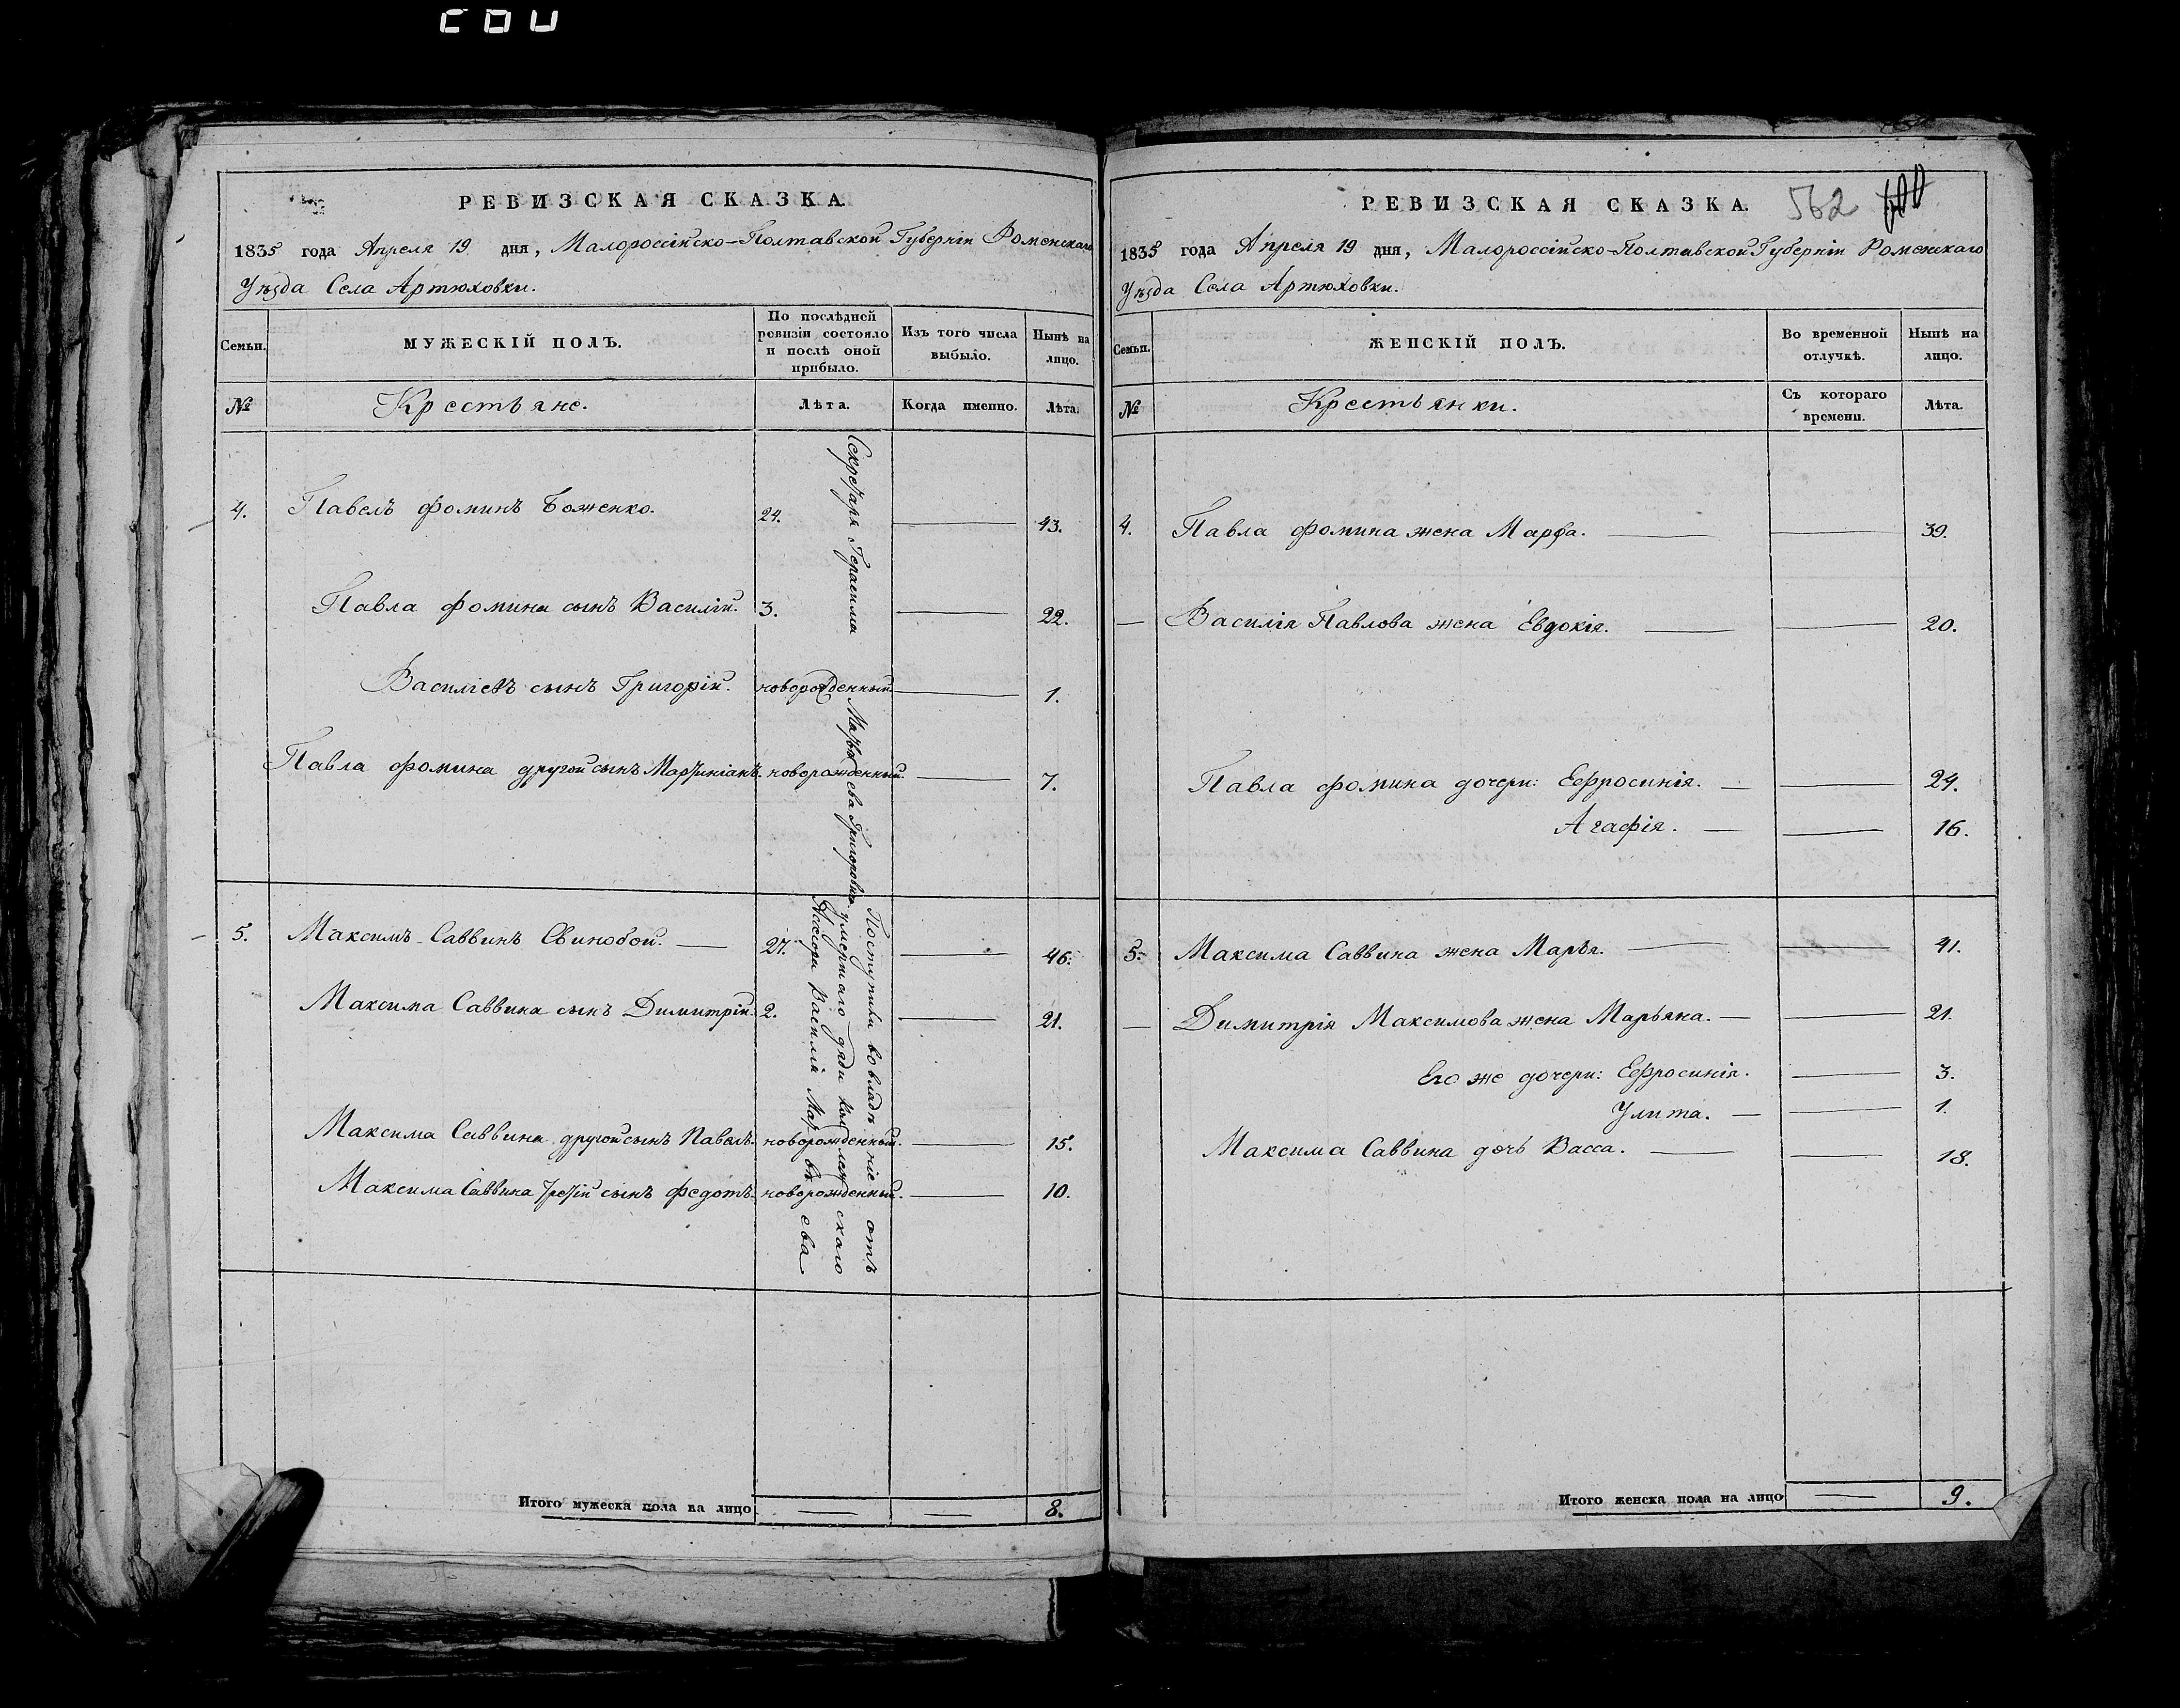 РЕВИЗСКАЯ СКАЗКА.
1835 года Апреля 19 дня, Малороссійско-Полтавской Губерніи Роменскаго
Уѣзда Села Артюховки.
Семьи.
МУЖЕСКІЙ ПОЛЪ.
По послѣдней ревизіи состояло и послѣ оной прибыло.
Изъ того числа выбыло.
Нынѣ на лицо.
№ Крестьяне. Лѣта. Когда именно. Лѣта.
4. Павелъ Фоминъ Боженко. 24. 43.
Павла Фомина сынъ Василій. 3. 22.
Василіевъ сынъ Григорій. новорожденный. 1.
Павла Фомина другой сынъ Мартиніанъ. новорожденный. 7.
5. Максимъ Саввинъ Свинобой. 27. 46.
Максима Саввина сынъ Димитрій. 2. 21.
Максима Саввина другой сынъ Павелъ. новорожденный. 15.
Максима Саввина третій сынъ Федотъ. новорожденный. 10.
Поступили во владѣніе отъ
умершаго дяди
Василія
Секретаря Герасима Григоровича
Итого мужеска пола на лицо 8.
РЕВИЗСКАЯ СКАЗКА. 562
1835 года Апреля 19 дня, Малороссійско-Полтавской Губерніи Роменскаго
Уѣзда Села Артюховки.
Семьи.
ЖЕНСКІЙ ПОЛЪ.
Во временной отлучкѣ.
Нынѣ на лицо.
№ Крестьянки. Съ котораго времени. Лѣта.
4. Павла Фомина жена Марфа. 39.
Василія Павлова жена Евдокія. 20.
Павла Фомина дочери: Ефросинія. 24.
Агафія. 16.
5. Максима Саввина жена Марья. 41.
Димитрія Максимова жена Марьяна. 21.
Его же дочери: Ефросинія. 3.
Улита. 1.
Максима Саввина дочь Васса. 18.
Итого женска пола на лицо 9.